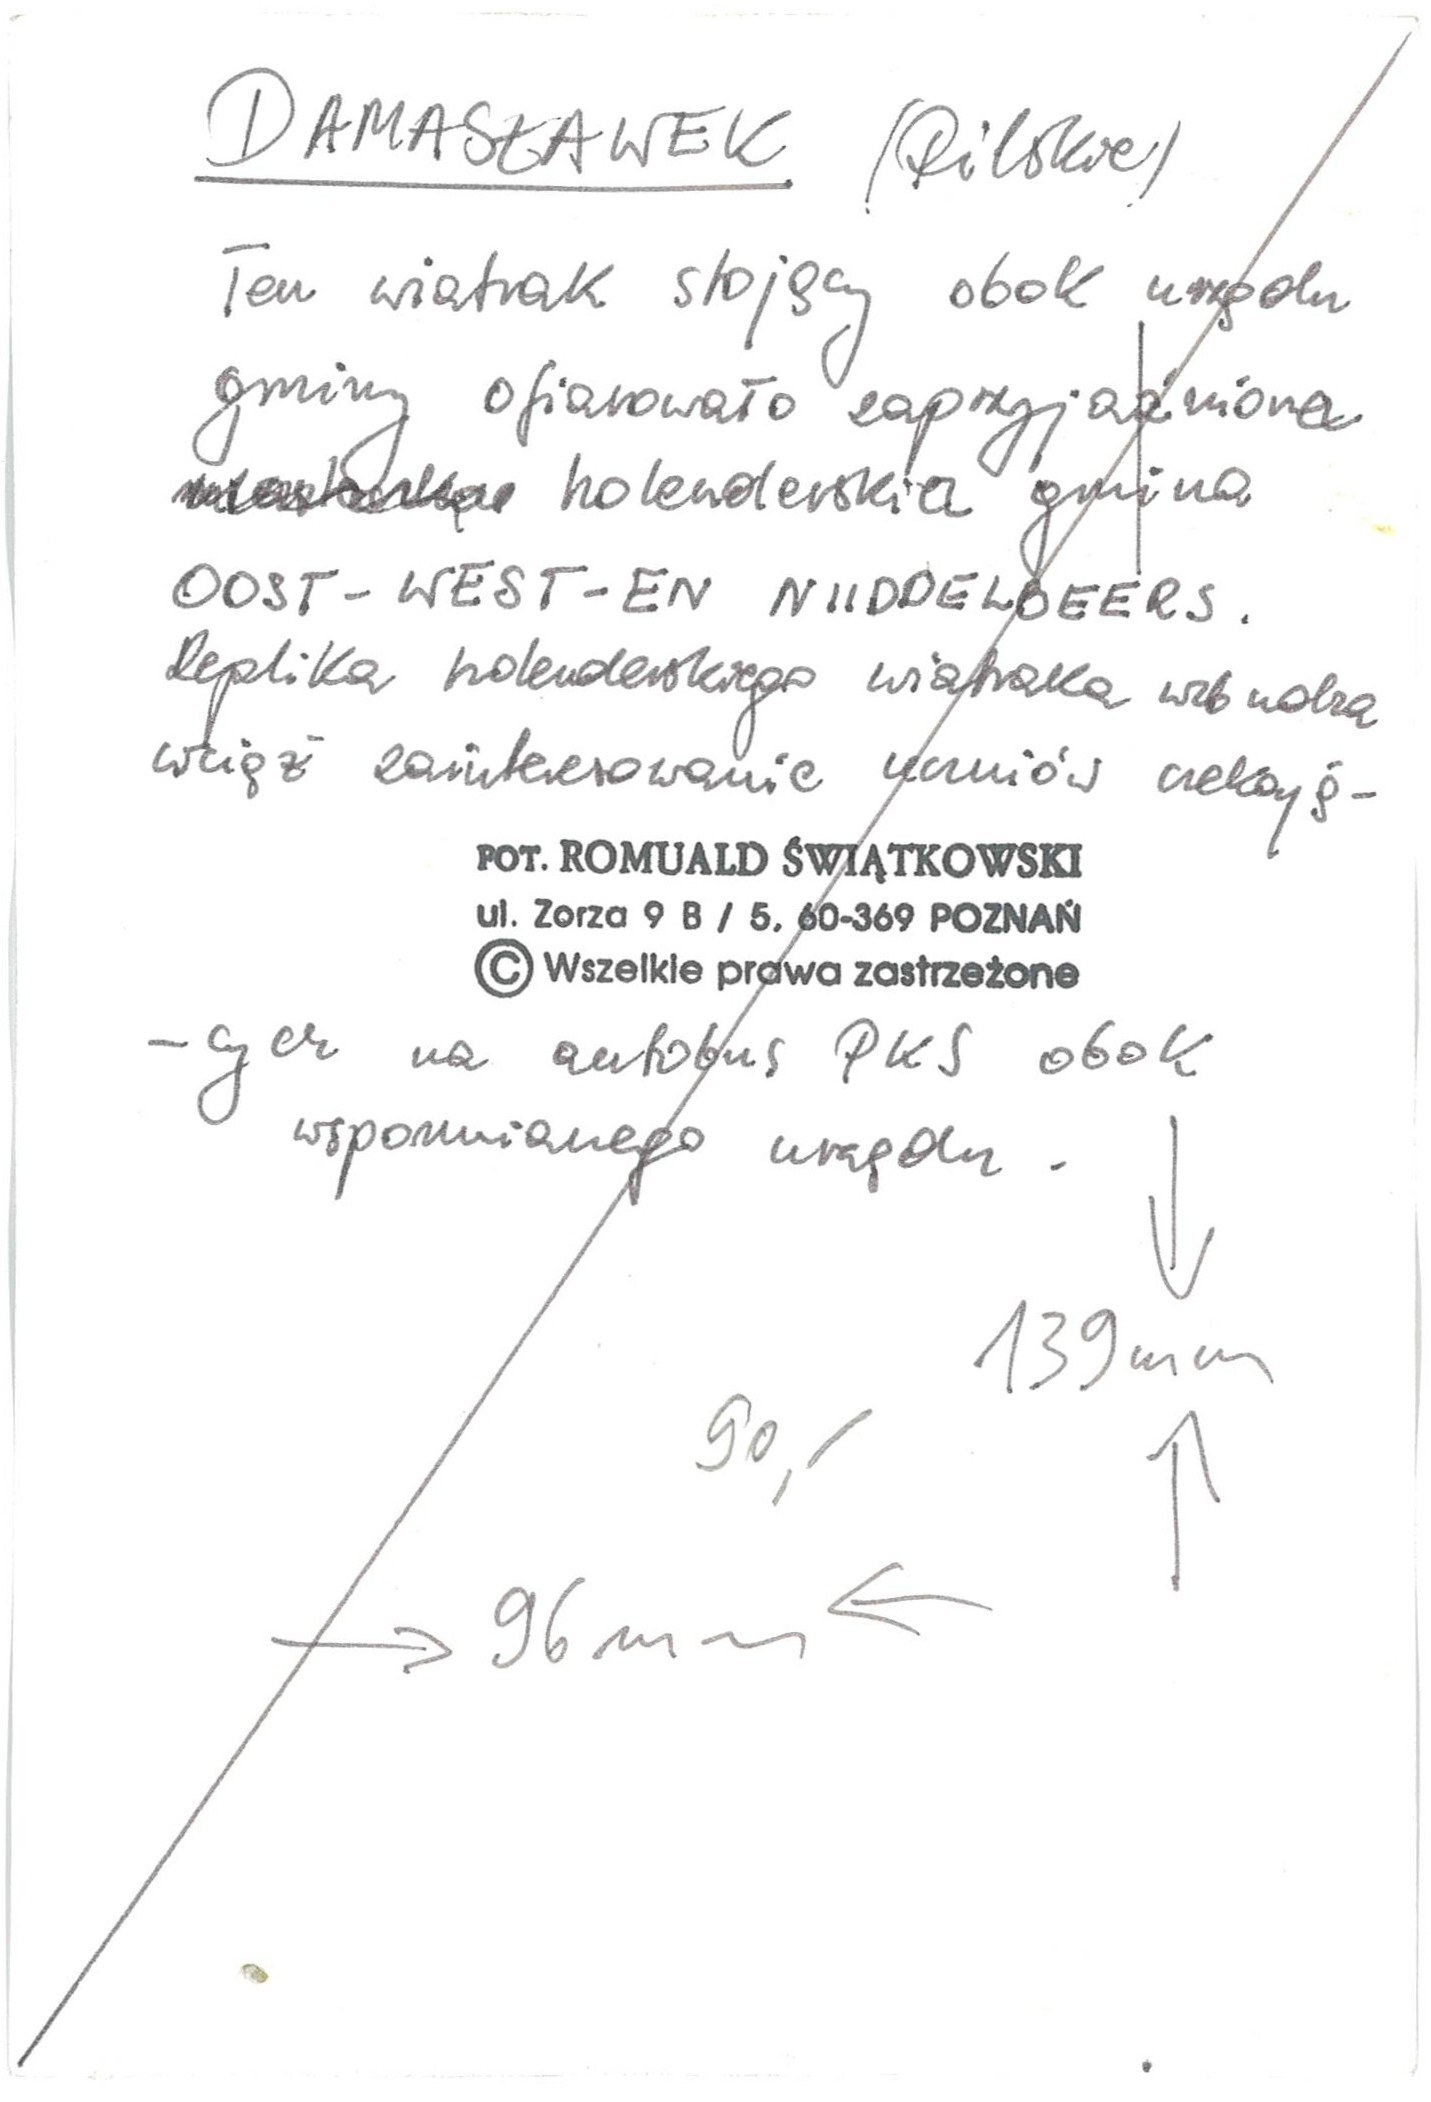 DAMASŁAWEK (Pilskie)
Ten wiatrak stojący obok urzędu
gminy ofiarowało zaprzyjaźniona
holenderska gmina
OOST-WEST-EN MIDDELBEERS.
Replika holenderskiego wiatraka wzbudza
wciąż zainteresowanie uczniów czekają-
FOT. ROMUALD ŚWIĄTKOWSKI
ul. Zorza 9 B / 5, 60-369 POZNAŃ
© Wszelkie prawa zastrzeżone
-cych na autobus PKS obok
wspomnianego urzędu.
139mm
90,-
96mm